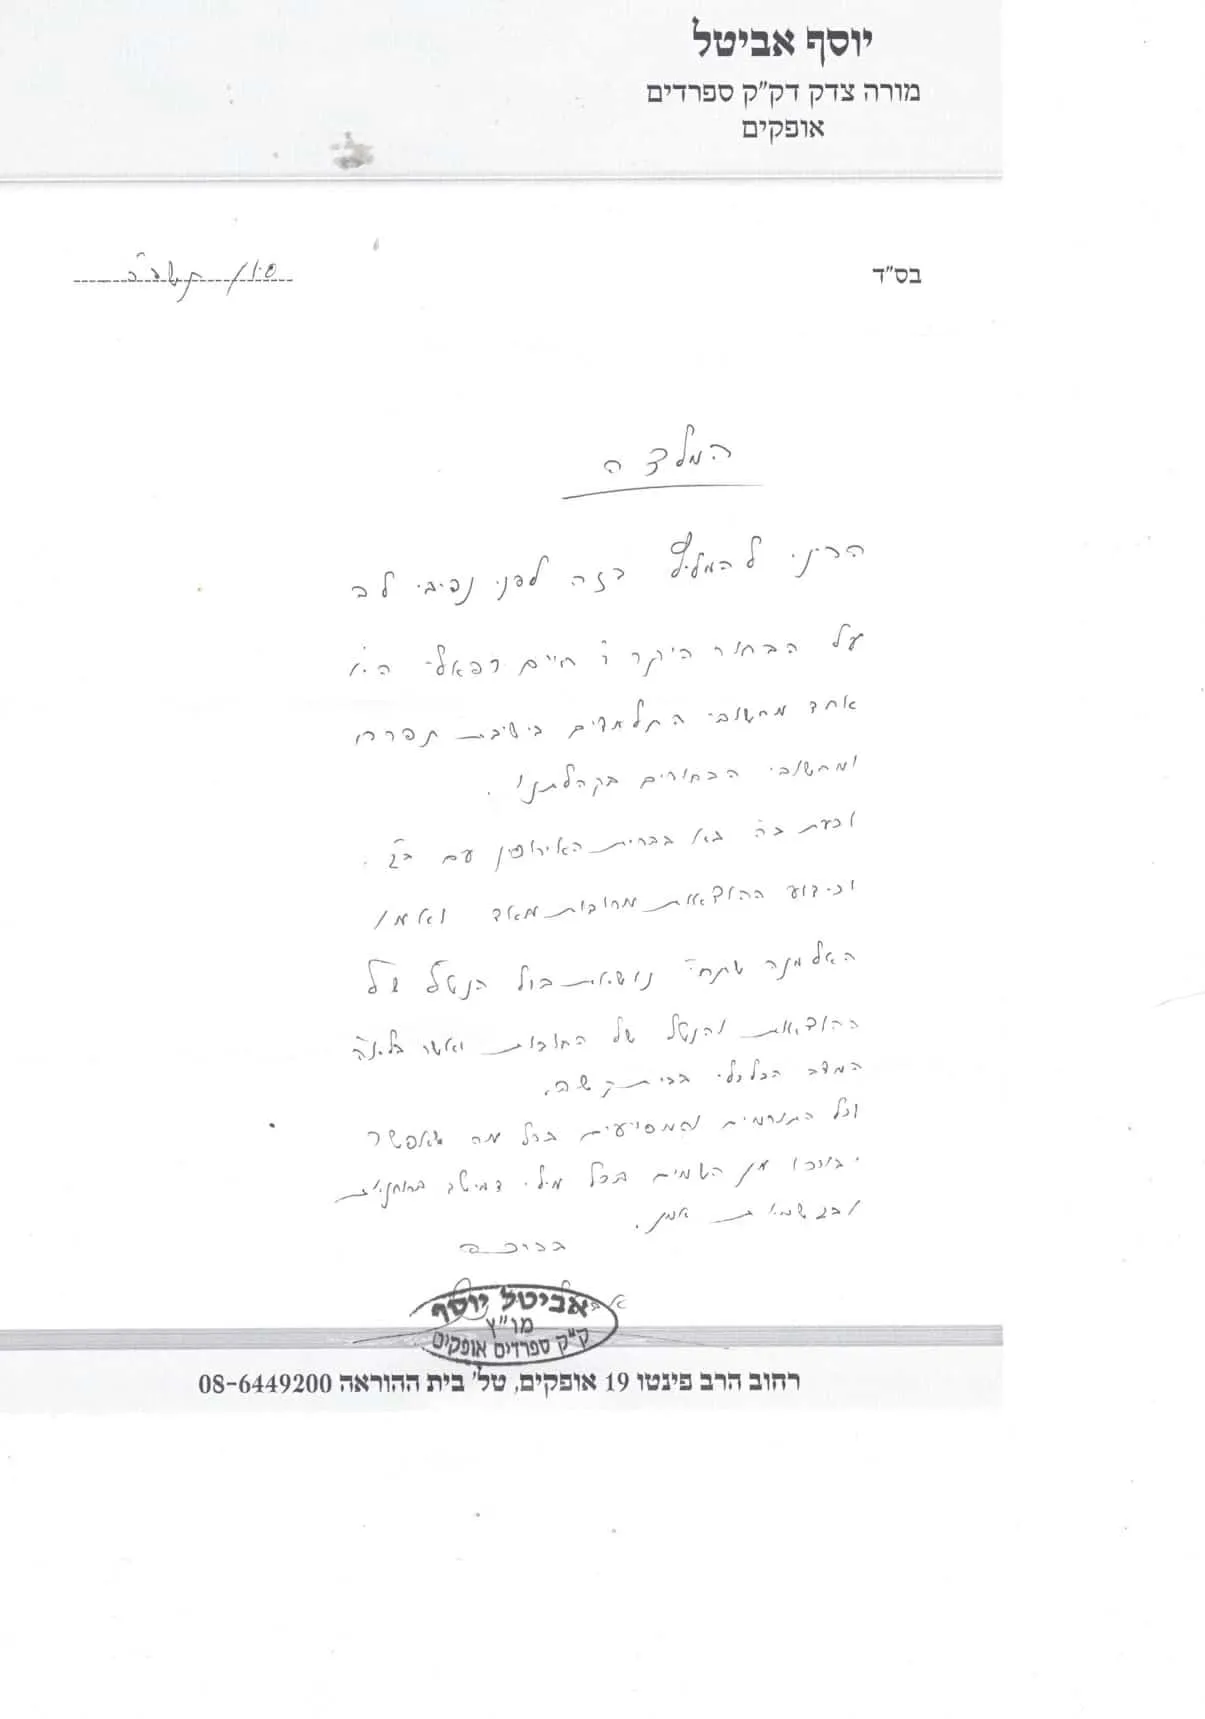 יוסף אביטל
מורה צדק דק"ק ספרדים
אופקים
בס"ד
סיון תשפ"ב
המלצה
הריני להמליץ בזה לפני נדיבי לב
על הבחור היקר ר' חיים רפאלי הי"ו
אחד מחשובי התלמידים בישיבת תפרח
ומחשובי הבחורים בקהלתנו.
וכעת ב"ה בא בברית האירוסין עם ב"ג.
וכידוע ההוצאות מרובות מאד ואמו
האלמנה שתחי' נושאת בכל הנטל של
ההוצאות והנטל של החובות ואשר
המצב הכלכלי בבית קשה.
וכל התורמים והמסייעים בכל מה שאפשר
יבורכו מן השמים בכל מילי דמיטב ברוחניות
ובגשמיות אמן.
בברכה
אביטל יוסף
מו"ץ
ק"ק ספרדים אופקים
רחוב הרב פינטו 19 אופקים, טל' בית ההוראה 08-6449200